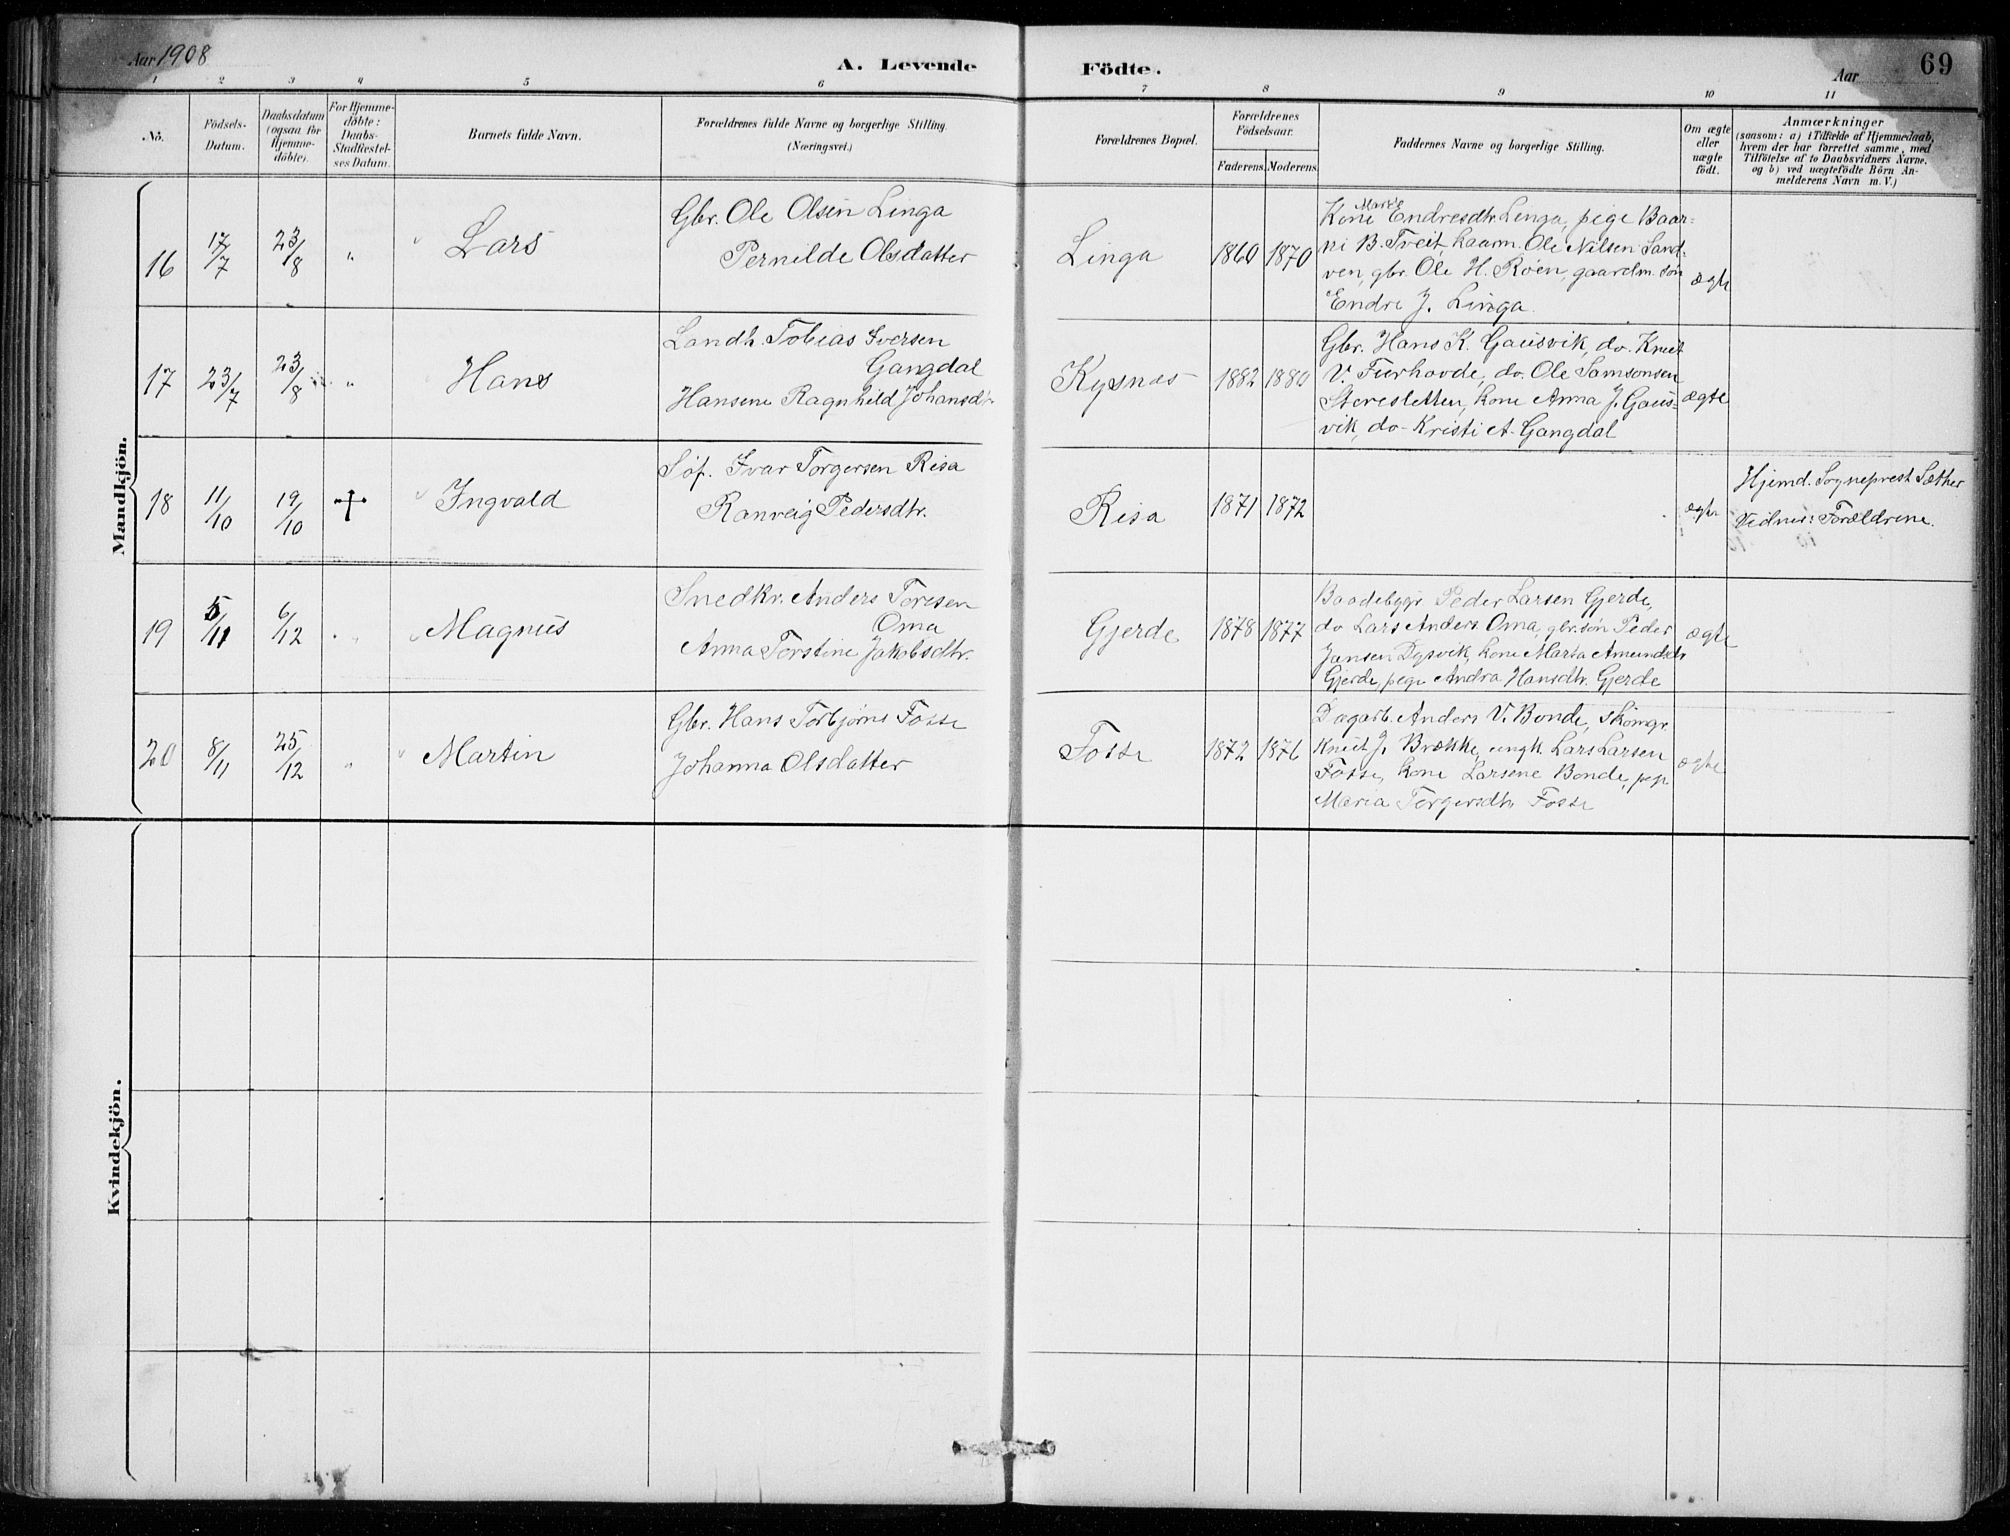 Aar 1908
A. Levende
Födte.
Aar
69
1 2 3 4 5 6 7 8 9 10 11
No.
Födsels-
Datum.
Daabsdatum
(ogsaa for
Hjemme-
döbte).
For Hjemme-
döbte:
Daabs-
Stadfæstel-
ses Datum.
Barnets fulde Navn.
Forældrenes fulde Navne og borgerlige Stilling.
(Næringsvei.)
Forældrenes Bopæl.
Forældrenes
Födselsaar.
Faderens. Moderens.
Faddernes Navne og borgerlige Stilling.
Om ægte
eller
uægte
födt.
Anmærkninger
(saasom: a) i Tilfælde af Hjemmedaab,
hvem der har forrettet samme, med
Tilföielse af to Daabsvidners Navne.
og b) ved uægtefödte Börn An-
melderens Navn m. V.)
Mandkjön.
16
17/7
23/8
"
Lars
Gbr. Ole Olsen Linga
Pernilde Olsdatter
Linga
1860
1870
Kone Endresdtr. Linga, pige Baar-
ni B. Treit, kaarm. Ole Nilsen Sand-
ven, gbr. Ole H. Røen, gaardm. søn
Endre J. Linga.
ægte
17
23/7
23/8
"
Hans
Landh. Tobias Iversen
Gangdal
Hansene Ragnhild Johansdtr.
Kysnes
1882
1880
Gbr. Hans K. Gausvik, do. Knut
V. Furhovde, do. Ole Samsonsen
kone Anna J. Gaus-
vik, do- Kristi A. Gangdal
ægte
18
11/10
19/10
Ingvald
Søf. Ivar Torgersen Risa
Ranveig Pedersdtr.
Risa
1871
1872
ægte
Hjemd. Sogneprest Sæther
Vidner: Forældrene.
19
5/11
6/12
"
Magnus
Snedkr. Anders Toresen
Oma
Anna Torstine Jakobsdtr.
Gjerde
1878
1877
Baadebygr. Peder Larsen Gjerde,
do Lars Anders. Oma, gbr. søn Peder
Jansen Dysvik, kone Marta Amundsdtr
Gjerde, pige Andra Hansdtr. Gjerde
ægte
20
8/11
25/12
"
Martin
Gbr. Hans Torbjørns Fosse
Johanna Olsdatter
Fosse
1872
1876
Dagarb. Anders V. Bonde, skomgr.
Knut J. Brække, ungk. Lars Larsen
Fosse, kone Larsene Bonde, pige
Maria Torgersdtr. Fosse
ægte
Kvindekjön.